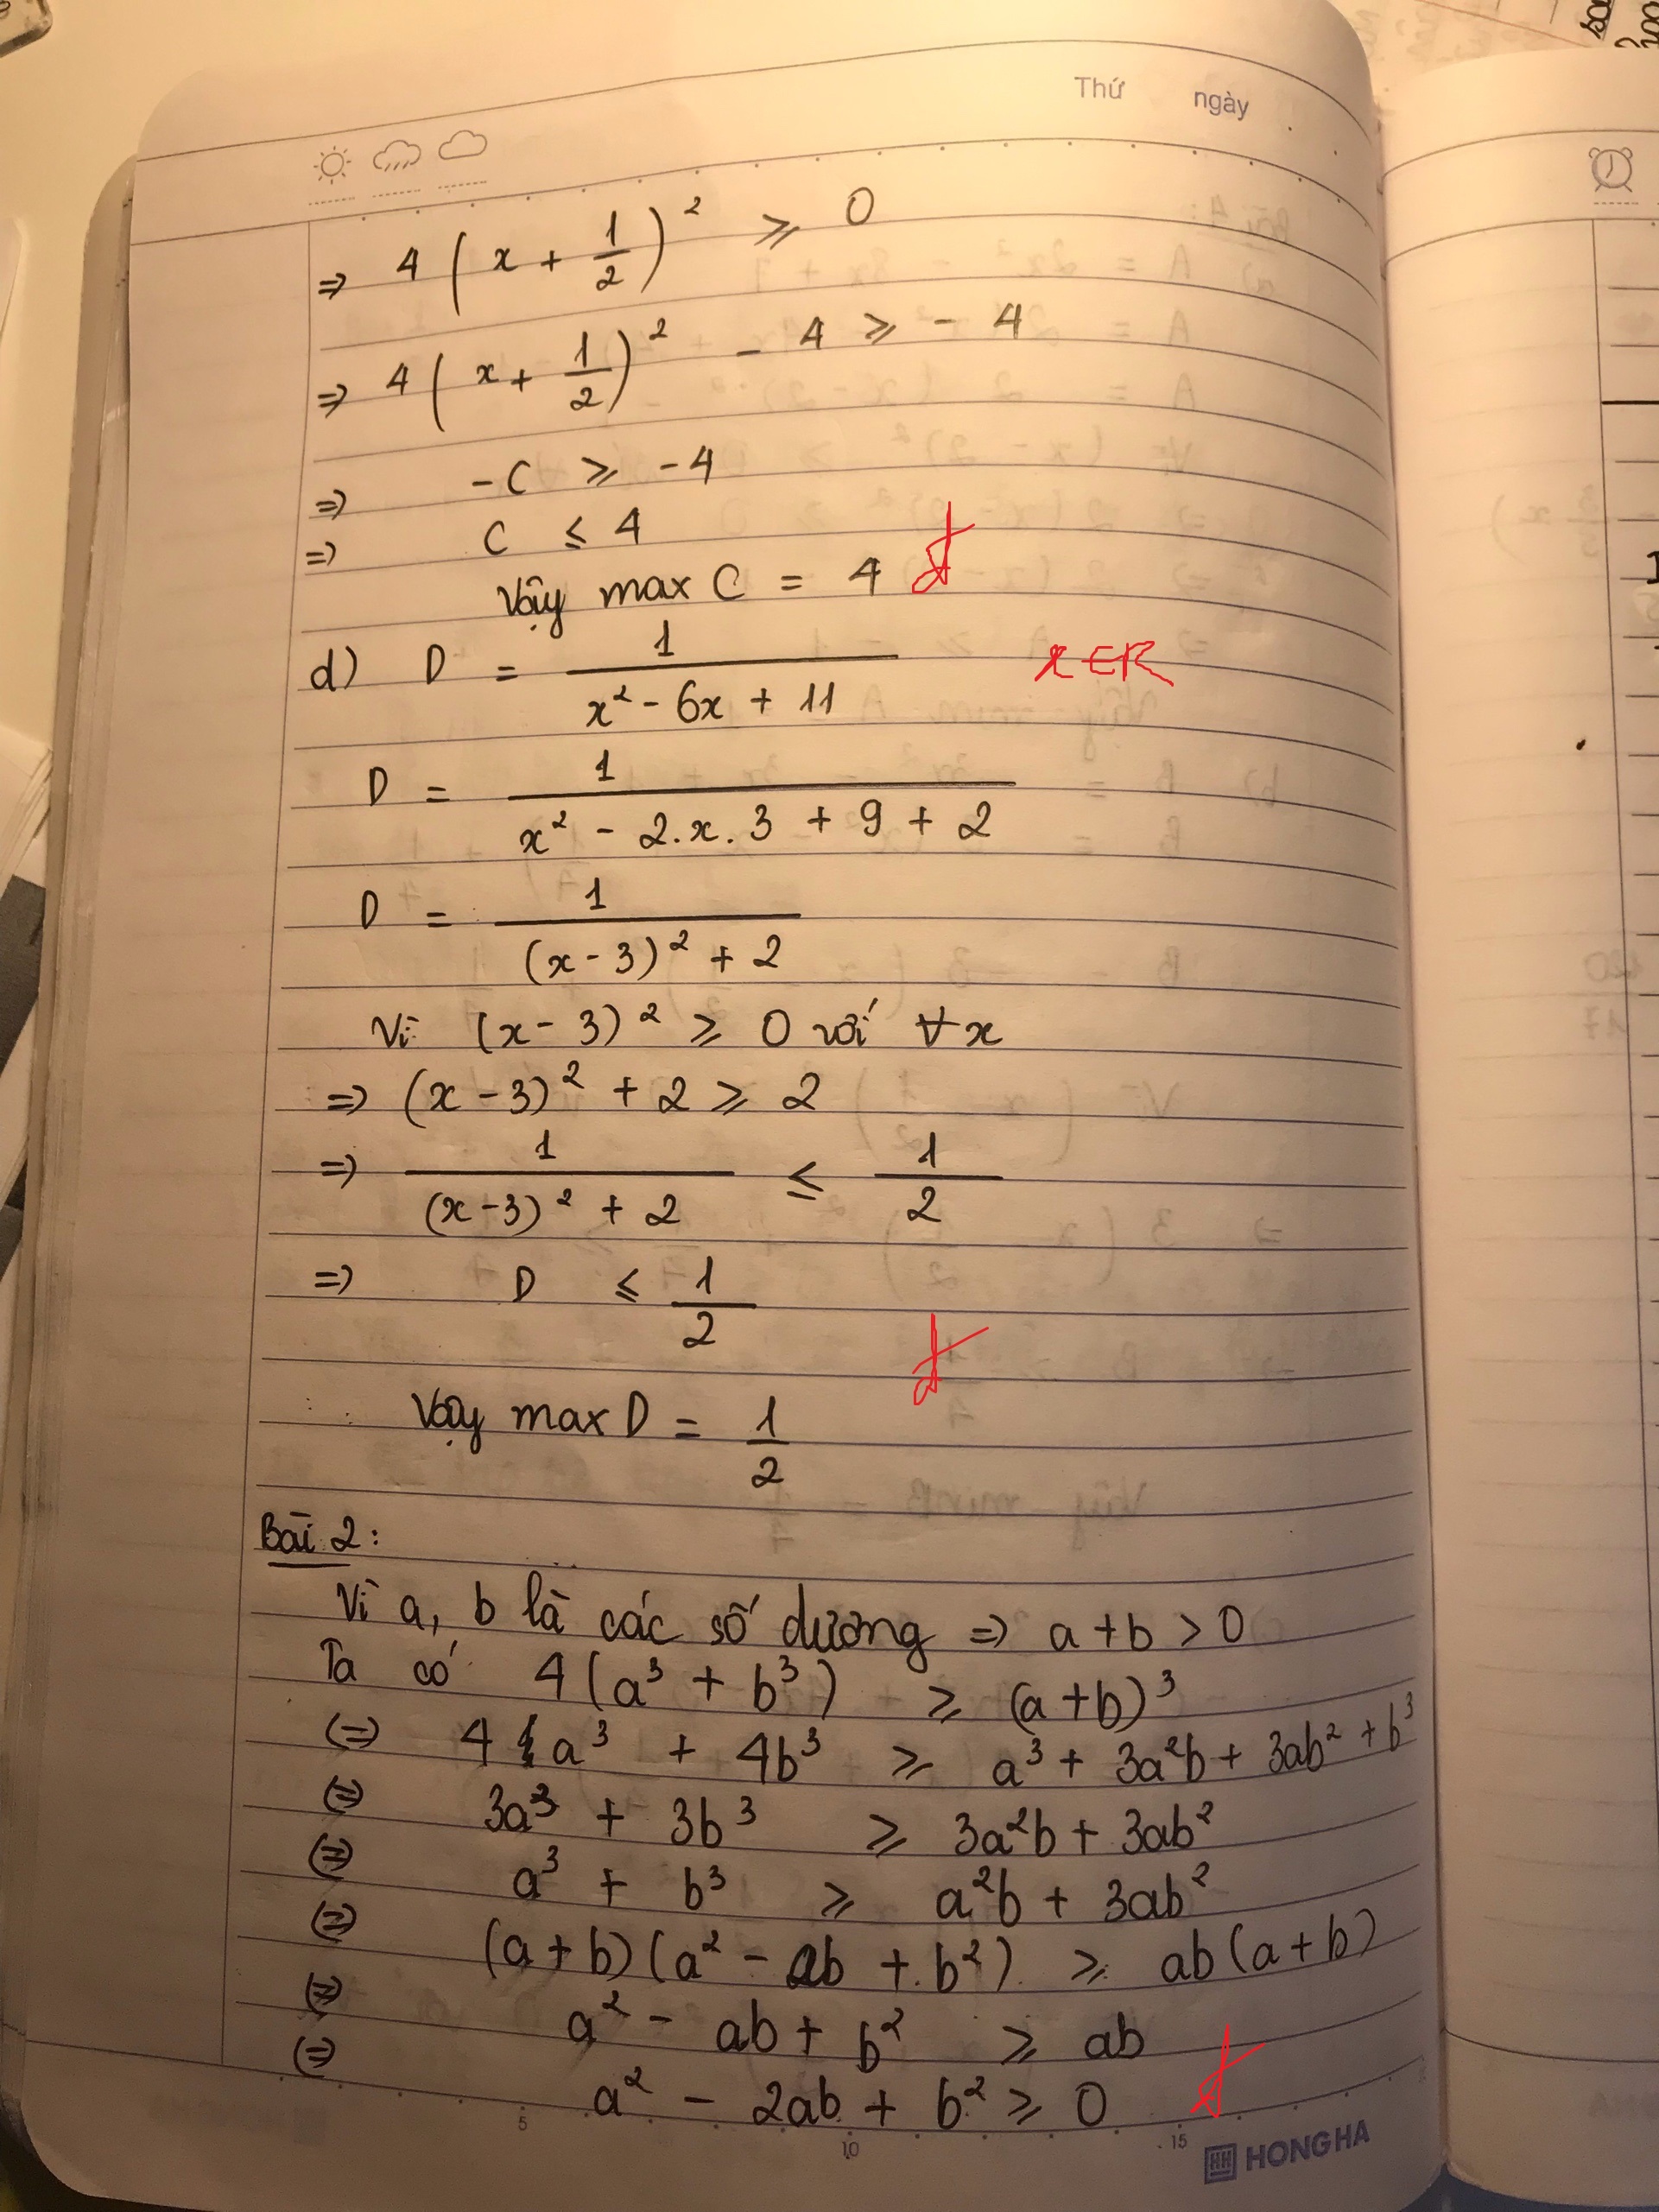 Thứ ngày
⇒ 4(x + 1/2)² ≥ 0
⇒ 4(x + 1/2)² - 4 ≥ - 4
⇒ -C ≥ -4
⇒ C ≤ 4
Vậy max C = 4 đ
d) D = 1/(x² - 6x + 11) x ∈ R
D = 1/(x² - 2.x.3 + 9 + 2)
D = 1/((x-3)² + 2)
Vì (x-3)² ≥ 0 với ∀x
⇒ (x-3)² + 2 ≥ 2
⇒ 1/((x-3)² + 2) ≤ 1/2
⇒ D ≤ 1/2
đ
Vậy max D = 1/2
Bài 2:
Vì a, b là các số dương ⇒ a+b > 0
Ta có 4(a³ + b³) ≥ (a+b)³
(⇒) 4a³ + 4b³ ≥ a³ + 3a²b + 3ab² + b³
(⇒) 3a³ + 3b³ ≥ 3a²b + 3ab²
(⇒) a³ + b³ ≥ a²b + 3ab²
(⇒) (a+b)(a² - ab + b²) ≥ ab(a+b)
(⇒) a² - ab + b² ≥ ab
(⇒) a² - 2ab + b² ≥ 0 đ
5 10 15
HH HONG HA